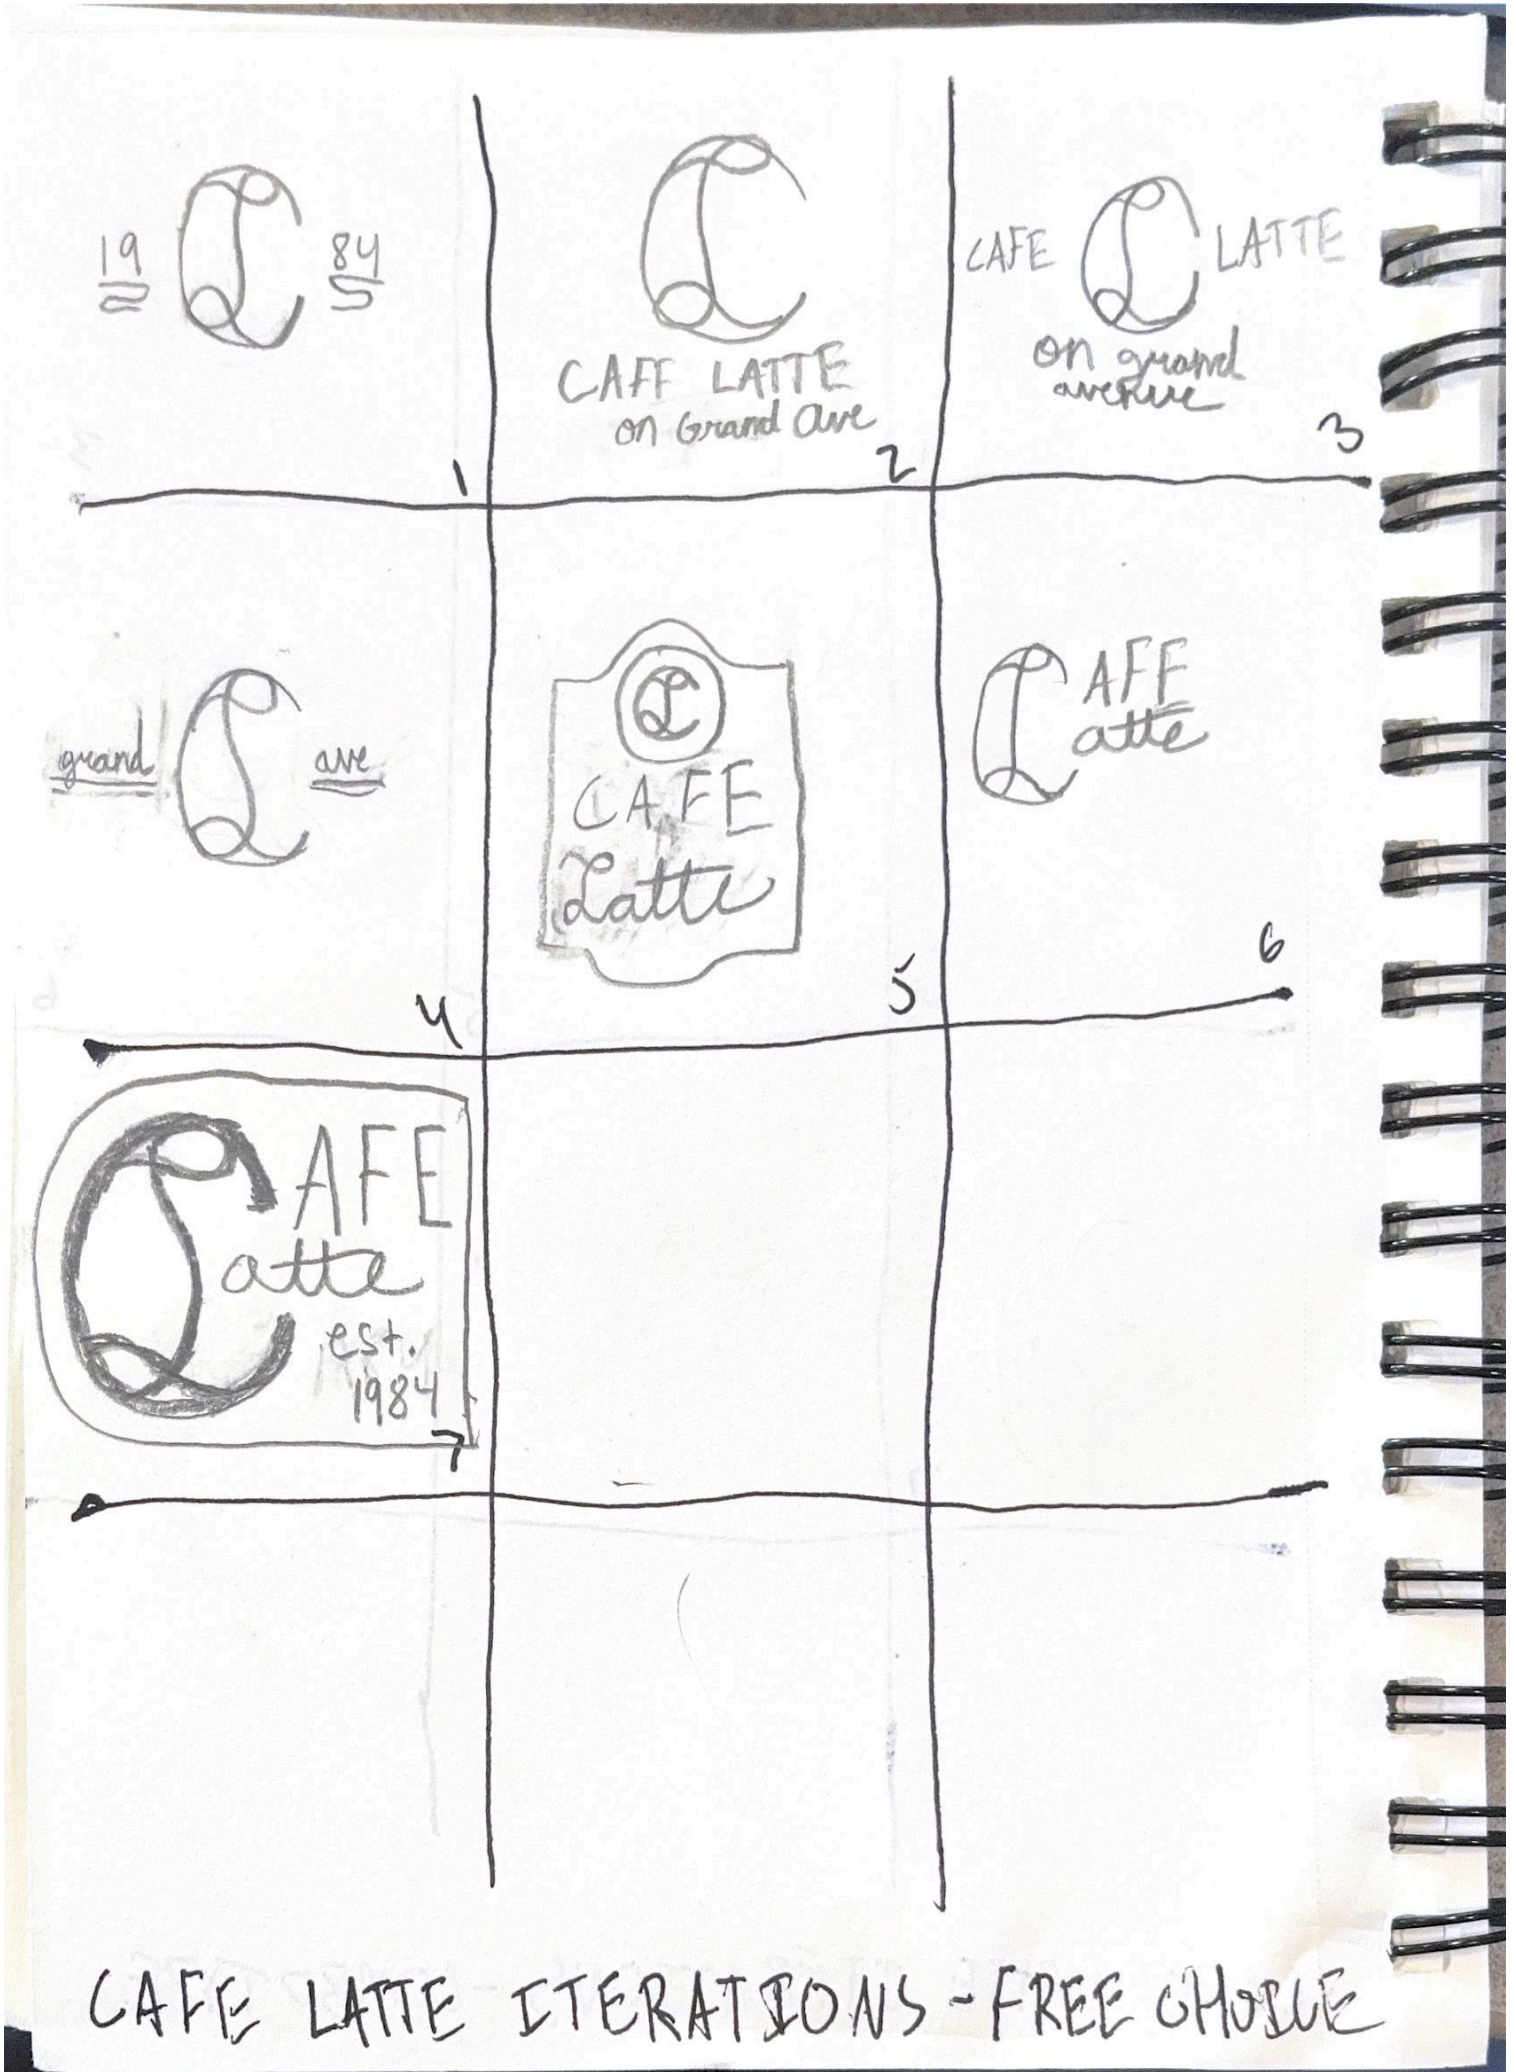 19 CL 84
1
CL
CAFE LATTE
on Grand Ave
2
CAFE CL LATTE
on grand
avenue
3
grand CL ave
4
CL
CAFE
Latte
5
CL AFE
atte
6
CL AFE
atte
est.
1984
7
CAFE LATTE ITERATIONS - FREE CHOICE